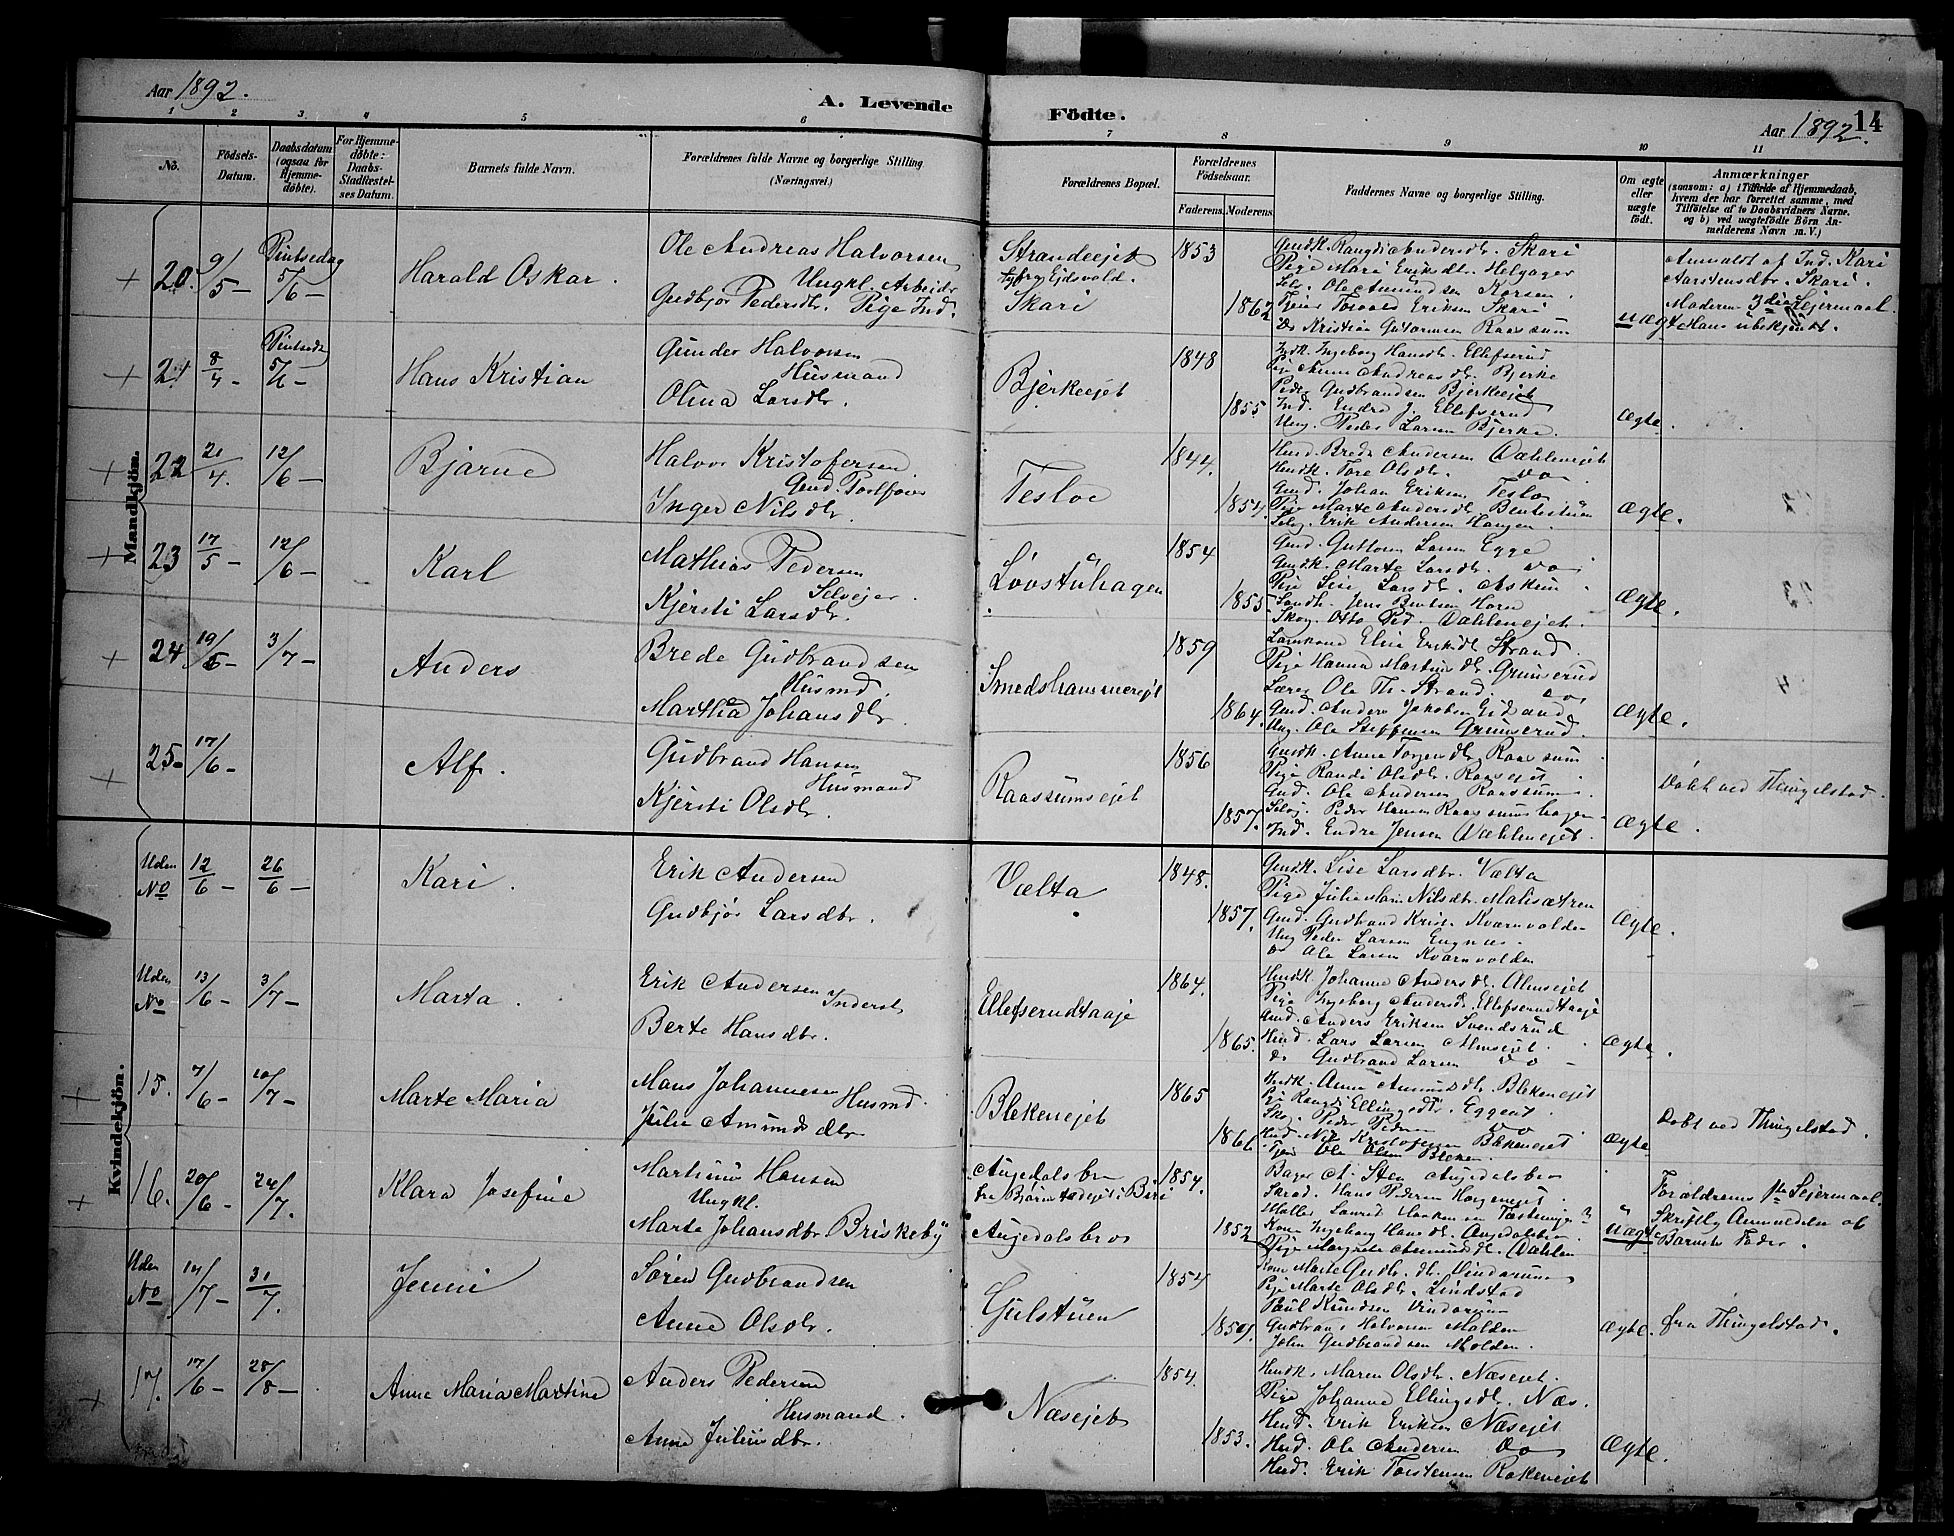 Aar 1892.
A. Levende Födte.
Aar 1892. 14
1 2 3 4 5 6 7 8 9 10 11
No.
Födsels-Datum.
Daabsdatum (ogsaa for Hjemme-döbte).
For Hjemme-döbte: Daabs-Stadfæstel-ses Datum.
Barnets fulde Navn.
Forældrenes fulde Navne og borgerlige Stilling (Næringsvei.)
Forældrenes Bopæl.
Forældrenes Födselsaar.
Faderens. Moderens.
Faddernes Navne og borgerlige Stilling.
Om ægte eller uægte födt.
Anmærkninger
(saasom: a) i Tilfælde af Hjemmedaab,
hvem der har forrettet samme, med
Tilföielse af to Daabsvidners Navne.
og b) ved uægtefödte Börn An-
melderens Navn m. V.)
Mandkjön.
20. 9/5 - Pintsedag 5/6 - Harald Oskar.
Ole Andreas Halvorsen
Ungkl. Arbeider
Gudbjør Pedersdr. Pige Ind.
Strandeejet
fra Eidsvold.
Skari
1853
1862
Gmdk. Rangdi Andersdr. Skari
Pige Mari Eriksdr. Helgager
Selv. Ole Amundsen Korsen.
Tjener Torvald Eriksen Skari
Do Kristian Guttormsen Raassum
uægt
Anmeldt af Ind. Kari
Aarstensdbr. Skari.
Moderens 3die Leiermaal.
Hans ubekjendt.
21 8/4 - Pintsedag 5/6 - Hans Kristian
Gunder Halvorsen
Husmand
Olina Larsdtr.
Bjerkeejet
1848
1855
Indk. Ingeborg Hansdr. Ellefserud
Pige Anne Andreasdr. Bjerke
Peder Gudbrandsen Bjerkeejet
Ind. Endre J. Ellefserud
Ung. Peder Larsen Bjerke.
Ægte.
22 21/4. 12/6 - Bjarne
Halvor Kristofersen
Gmd. Postfører
Inger Nilsdtr.
Tesloe
1844.
1854.
Husd. Brede Andersen Væhlenejet
Husdk. Tore Olsdtr. Do
Gmd. Johan Eriksen Teslo
Pige Marte Andersdr. Bentestuen
Selvg. Erik Andersen Haugen.
Ægte.
23 17/5 - 12/6 - Karl
Mathias Pedersen
Selveier.
Kjersti Larsdtr.
Løvstuhagen
1854
1855
Gmd. Guttorm Larsen Egge
Gmdk. Marte Larsdtr. Do
Pige Lise Larsdtr. Askim
Landh. Jens Bentsen Horn
Skog. Otto Ped. Væhlenejet.
Ægte.
24. 19/5 - 3/7 - Anders
Brede Gudbrandsen
Husmd.
Martha Johansdtr.
Smedshammerejet
1859
1864.
Lærkone Elise Eriksdr. Strand.
Pige Hanna Martinsdr. Grimserud
Lærer Ole Th. Strand. Do
Gmd. Anders Jakobsen Eidsand
Ung. Ole Steffensen Grimserud.
Ægte.
25 17/6 - Alf.
Gudbrand Hansen
Husmand
Kjersti Olsdtr.
Raassumsejet
1856
1857.
Gmdk. Anne Torgersdr. Raassum
Pige Randi Olsdtr. Raassejet
Gmd. Ole Andersen Raassum
Selvg. Peder Hansen Raassumshagen
Ind. Endre Jensen Væhlenejet.
Ægte.
Døbt ved Thingelstad.
Kvindekjön.
Uden No 12/6 - 26/6 - Kari.
Erik Andersen
Gudbjør Larsdtr.
Vælta
1848.
1857.
Gmdk. Lise Larsdtr. Vælta
Pige Julia Mari Nilsdtr. Malisætren
Gmd. Gudbrand Krist. Kværnvolden
Ung Peder Larsen Engnæs.
Do Ole Larsen Kværnvolden
Ægte.
Uden No 13/6 - 3/7 - Marta.
Erik Andersen
Inderst
Berte Hansdbr.
Ellefserudtaaje
1864.
1865.
Husdk. Johanne Andersdr. Almsejet
Pige Ingeborg Andersd. Ellefserudtaaje
Gmd. Anders Eriksen Svendsrud
Husd. Lars Larsen Almsejet.
Do Gudbrand Larsen Do
Ægte.
15. 7/6 - 10/7 - Marte Maria
Mons Johannesen Husmd.
Julie Amundsdtr.
Blekenejet
1865
1866
Indk. Anne Amundsdr. Blekenejet
Pige Rangdi Ellingsdtr. Eggent.
Skog. Peder Pedersen Do
Husd. Nils Kristofersen Blekenejet
Tjen. Ole Olsen Bleken
Ægte
Døbt ved Thingelstad.
16. 20/6 - 24/7. Klara Josefine
Martinius Hansen
Ungkl.
Marte Johansdbr Briskeby
Augedalsbro
fra Bjørnstadejet i Biri
Augedalsbro
1854.
1852
Bager A. Steen Augedalsbro
Skræd. Hans Pedersen Horgenejet.
Kone Ingeborg Hansdr. Augedalsbro.
Pige Margrete Amundsdr. Dæhlen
Uægte
Forældrenes 1ste Leiermaal.
Skriftlig Anmeldelse af
Barnets Fader.
Uden No 14/7 - 31/7. Jenni
Søren Gudbrandsen
Anne Olsdtr.
Gulstuen
1854
1859.
Kone Marte Gudbr. dr. Vindorum
Pige Marte Olsdtr. Lindstad
Paul Knudsen Vindorum
Gudbrand Halvorsen Molden
John Gudbrandsen Molden.
Ægte.
fra Thingelstad.
17. 17/6 - 28/8 - Anne Maria Martine
Anders Pedersen
Husmand.
Anne Juliusdtr.
Næsejet
1854.
1853.
Husdk. Maren Olsdtr. Næsejet.
Pige Johanne Ellingsdr. Næs.
Husd. Erik Eriksen Næsejet
Husd. Ole Andersen Do
Husd. Erik Torstensen Rokenejet
Ægte.